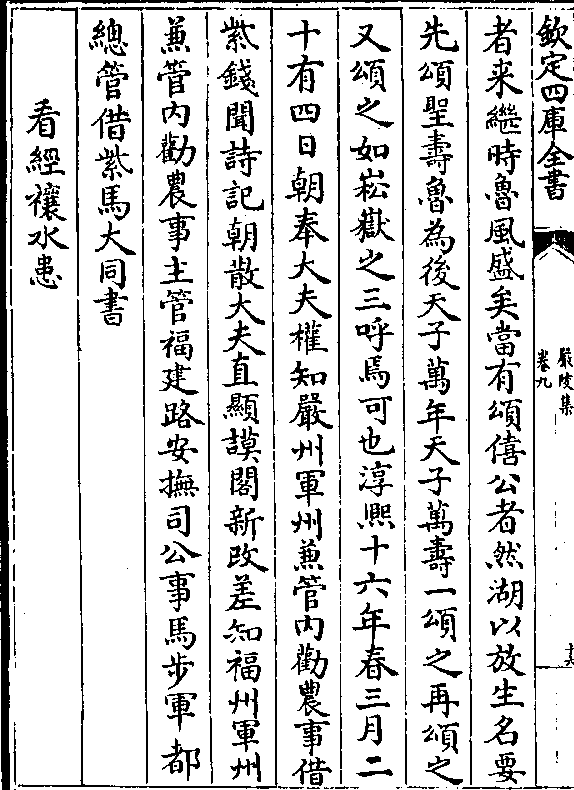 欽定四庫全書
嚴陵集
卷九
者来繼時魯風盛矣當有頌僖公者然湖以放生名要
先頌聖壽魯為後天子萬年天子萬壽一頌之再頌之
又頌之如崧嶽之三呼焉可也淳熙十六年春三月二
十有四日朝奉大夫權知嚴州軍州兼管内勸農事借
紫錢聞詩記朝散大夫直顯謨閣新改差知福州軍州
兼管内勸農事主管福建路安撫司公事馬步軍都
總管借紫馬大同書
看經禳水患